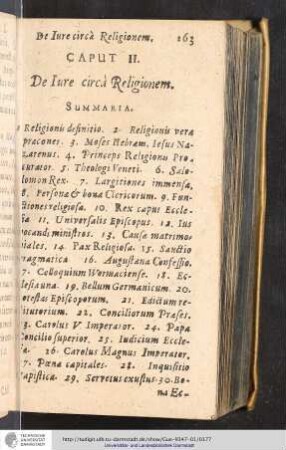 De Iure circà Religionem. 163
CAPUT II.
De Iure circà Religionem.
SUMMARIA.
Religionis definitio. 2. Religionis vera
pracones. 3. Moses Hebræus. Iesus Na-
zarenus. 4. Princeps Religionis Pro-
curator. 5. Theologi Veneti. 6. Salo-
lomon Rex. 7. Largitiones immensa,
8. Persona & bona Clericorum. 9. Fun-
ctiones religiosa. 10. Rex caput Eccle-
sia 11. Universalis Episcopus. 12. Ius
vocandi ministros. 13. Causa matrimo-
niales. 14. Pax Religiosa. 15. Sanctio
ragmatica 16. Augustana Confessio.
7. Colloquium Wormaciense. 18. Ec-
clesia una. 19. Bellum Germanicum. 20.
otestas Episcoporum. 21. Edictum re-
stitutorium. 22. Conciliorum Præses.
3. Carolus V. Imperator. 24. Papa
Concilio superior. 25. Iudicium Eccle-
sia. 26. Carolus Magnus Imperator.
7. Pœna capitales. 28. Inquisitio
apistica. 29. Servetus exustus. 30. Bo-
na Ec-
TECHNISCHE
UNIVERSITÄT
DARMSTADT
http://tudigit.ulb.tu-darmstadt.de/show/Gue-9347-01/0177
Universitäts- und Landesbibliothek Darmstadt